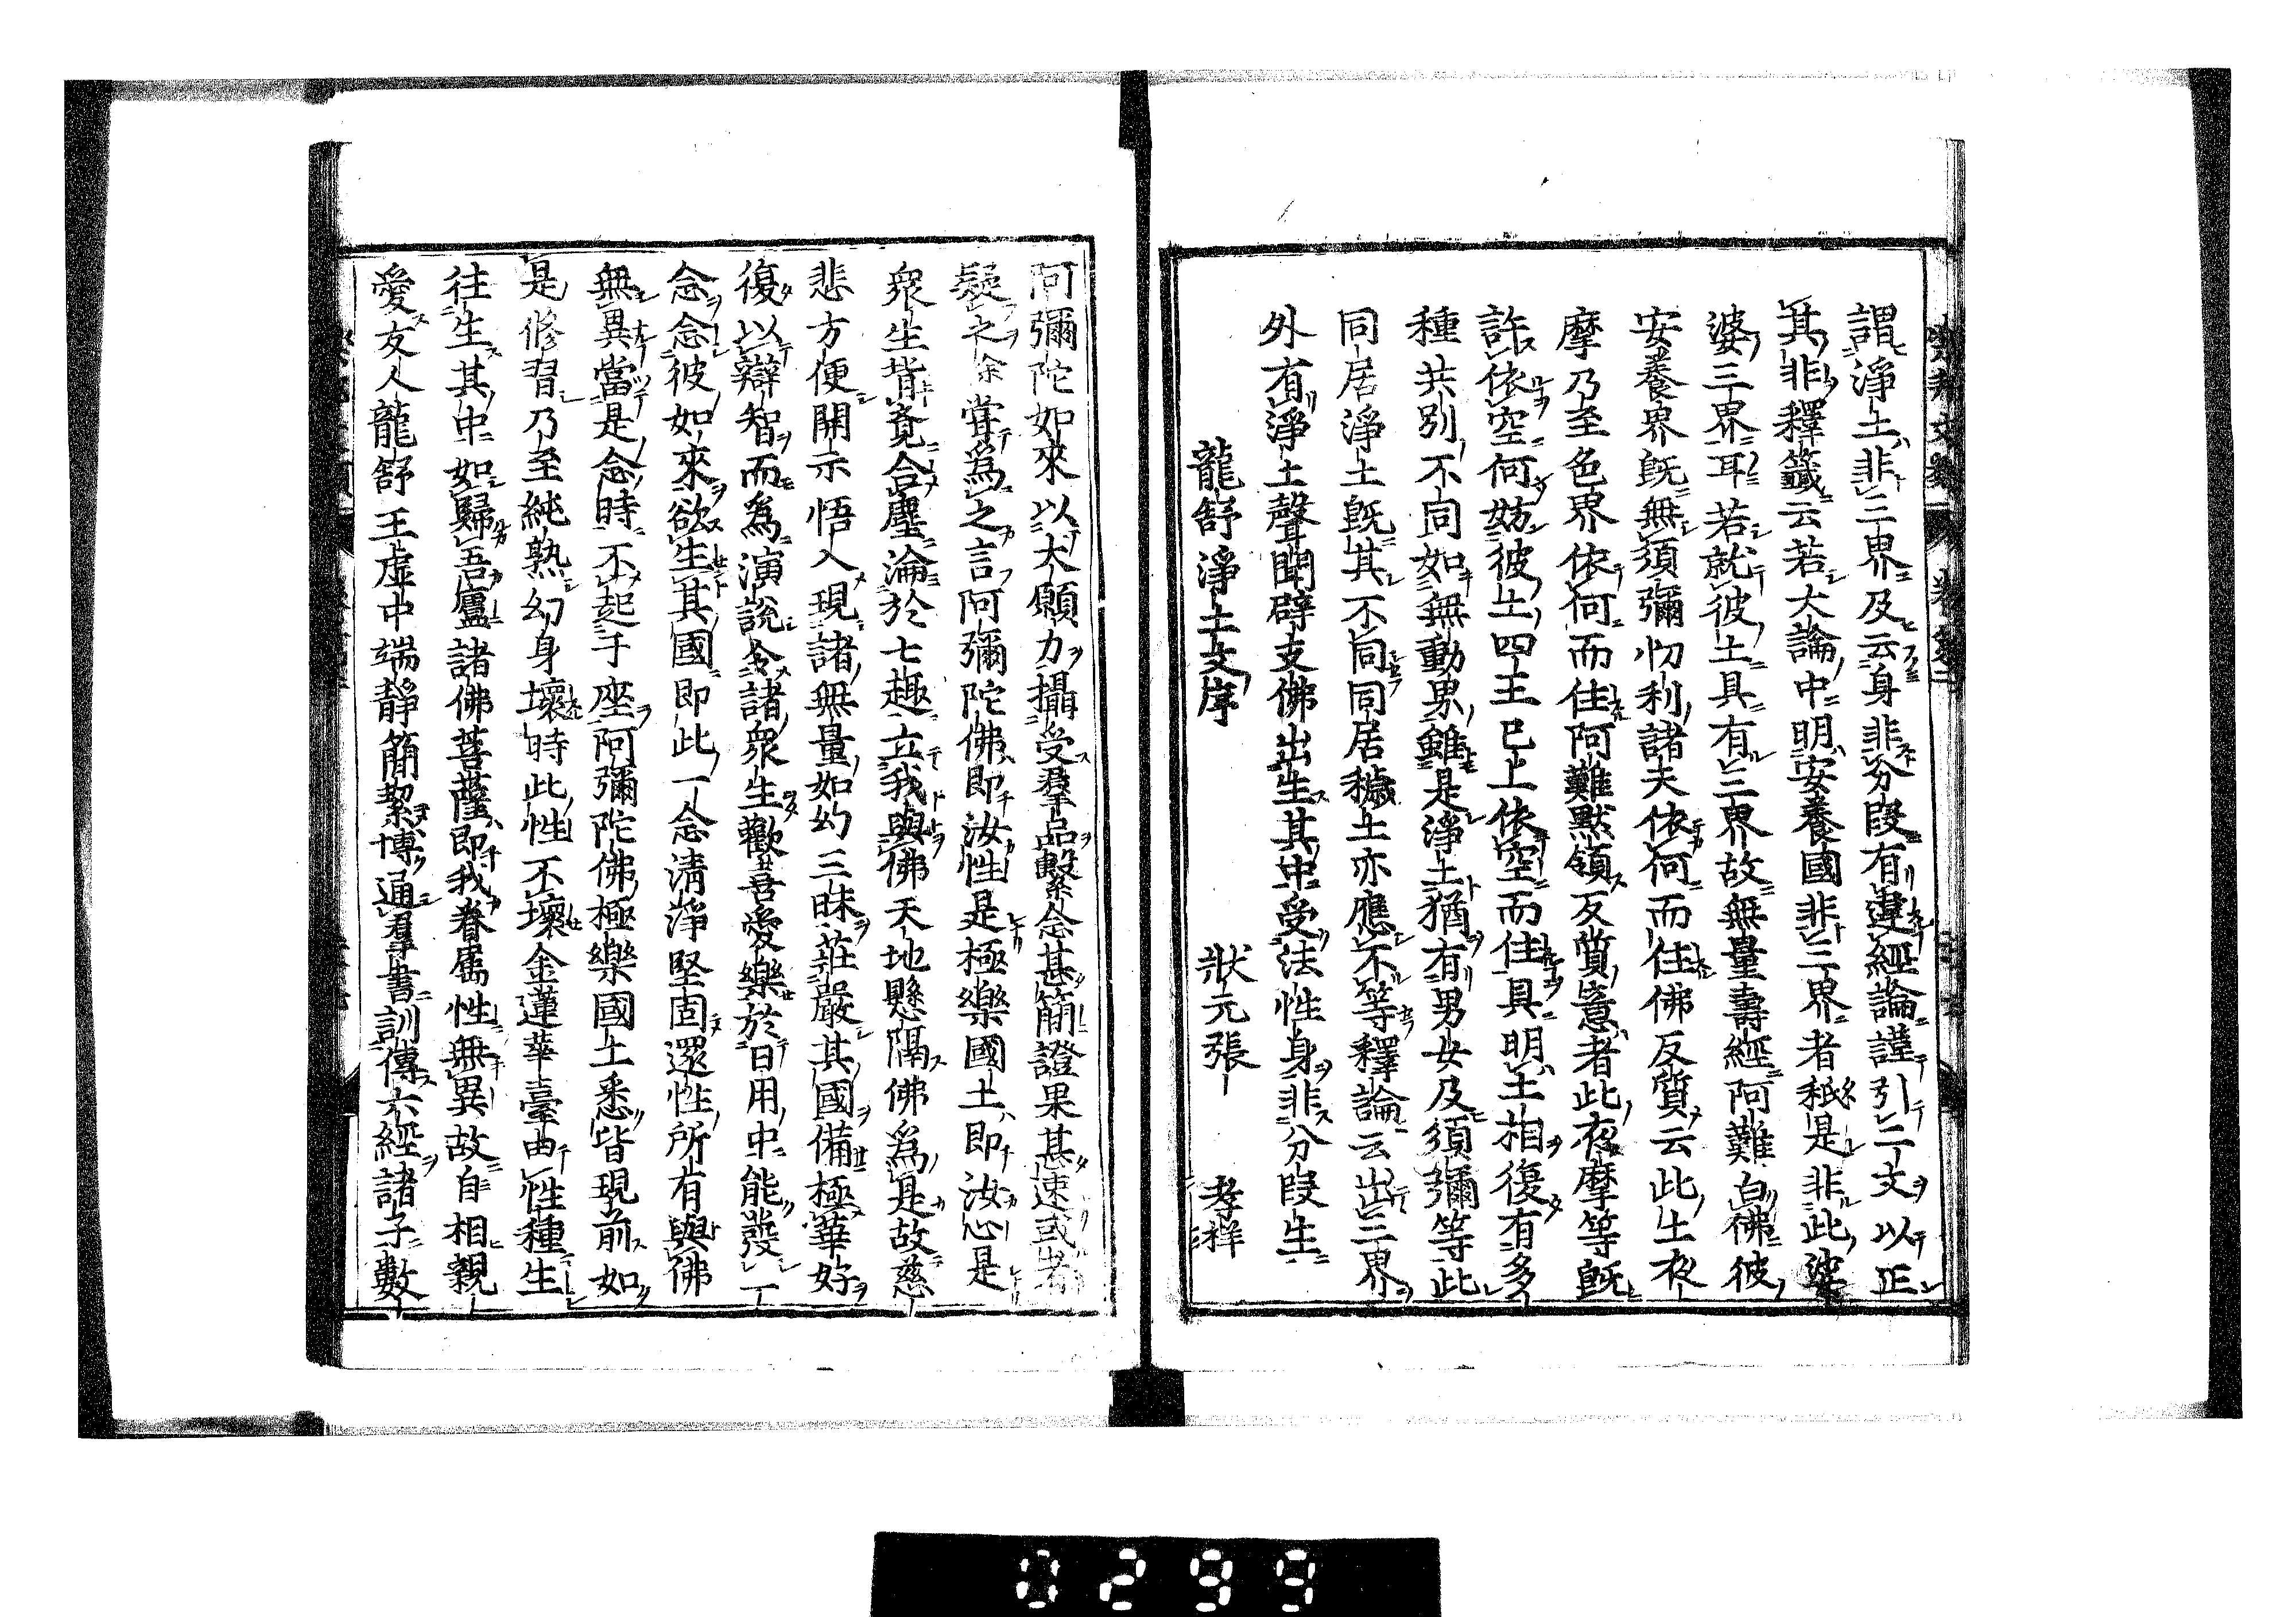 謂淨土非三界及云身非分段有違經論謹引二文以正
其非釋籤云若大論中明安養國非三界者秖是非此婆
婆三界耳若就彼土具有三界故無量壽經阿難白佛彼
安養界既無須彌忉利諸天依何而住佛反質云此土夜
摩乃至色界依何而住阿難默領反質意者此夜摩等既
許依空何妨彼土四王已上依空而住具明土相復有多
種共別不同如無動界雖是淨土猶有男女及須彌等此
同居淨土既其不同同居穢土亦應不等釋論云出三界
外有淨土聲聞辟支佛出生其中受法性身非分段生
龍舒淨土文序 狀元張 孝祥
阿彌陀如來以大願力攝受羣品繫念甚簡證果甚速或者
疑之余嘗爲之言阿彌陀佛即汝性是極樂國土即汝心是
衆生背覺合塵淪於七趣立我與佛天地懸隔佛爲是故慈
悲方便開示悟入現諸無量如幻三昧莊嚴其國備極華好
復以辯智而爲演說令諸衆生歡喜愛樂於日用中能發一
念念彼如來欲生其國即此一念淸淨堅固還性所有與佛
無異當是念時不起于座阿彌陀佛極樂國土悉皆現前如
是修習乃至純熟幻身壞時此性不壞金蓮華臺由性種生
往生其中如歸吾廬諸佛菩薩即我眷屬性無異故自相親
愛友人龍舒王虛中端靜簡絜博通羣書訓傳六經諸子數
0299